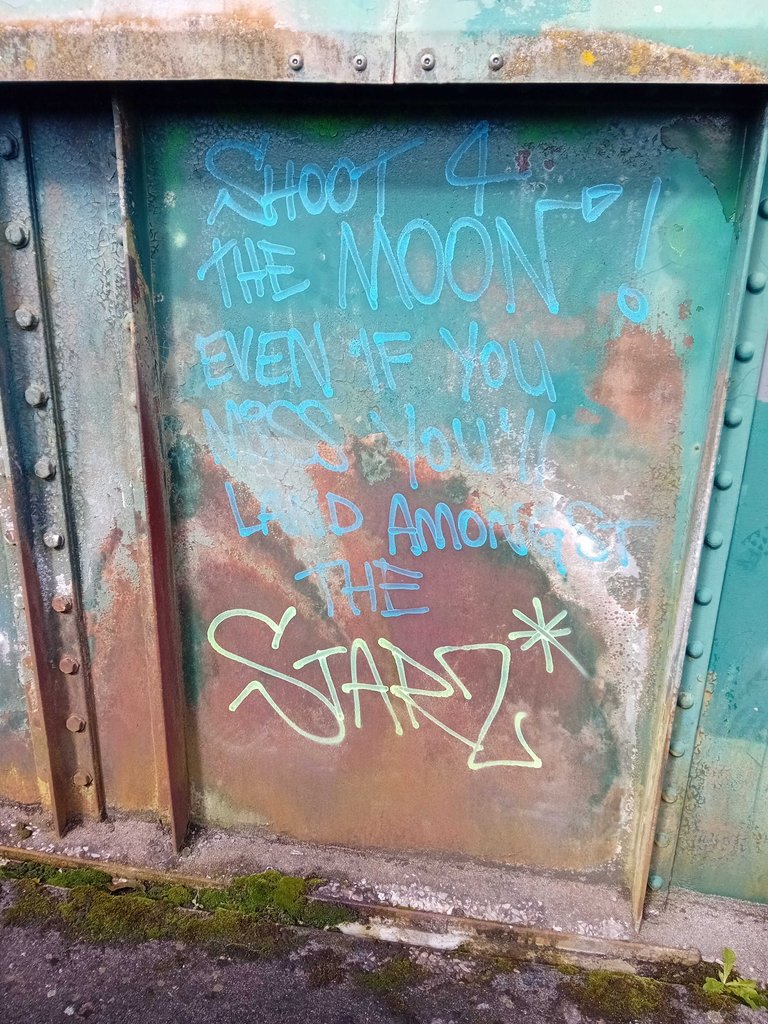 SHOOT 4
THE MOON!
EVEN IF YOU
MISS YOU'll
LAND AMONGST
THE
STARZ*